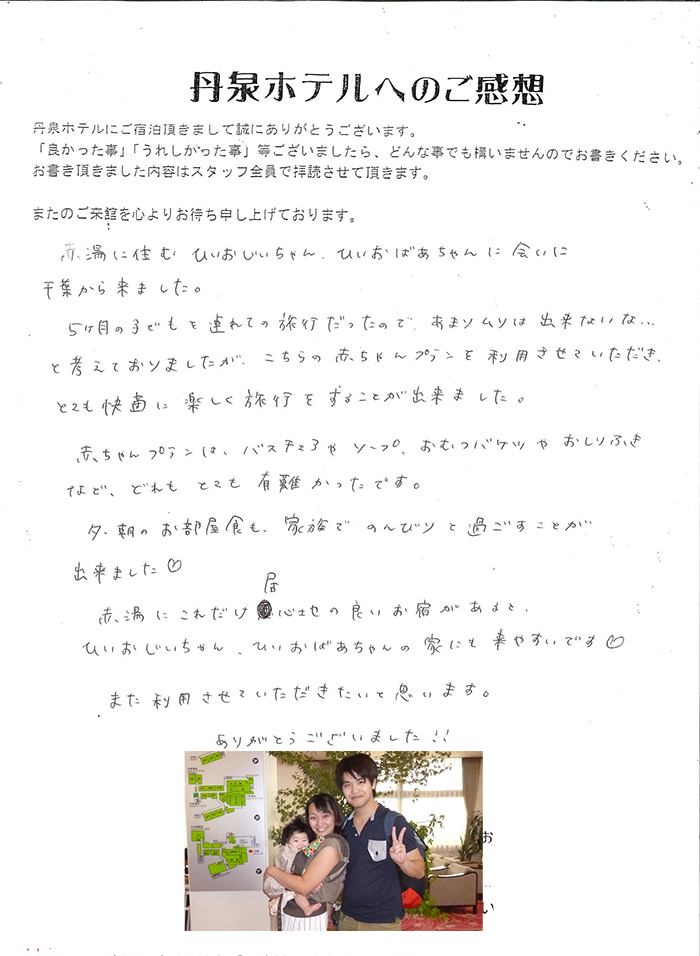 丹泉ホテルへのご感想
丹泉ホテルにご宿泊頂きまして誠にありがとうございます。
「良かった事」「うれしかった事」等ございましたら、どんな事でも構いませんのでお書きください。
お書き頂きました内容はスタッフ全員で拝読させて頂きます。
またのご来館を心よりお待ち申し上げております。
赤湯に住む ひいおじいちゃん、ひいおばあちゃんに 会いに
千葉から来ました。
5ヶ月の子どもを連れての旅行だったので、あまりムリは出来ないな…
と考えておりましたが、こちらの赤ちゃんプランを利用させていただき、
とても快適に楽しく旅行をすることが出来ました。
赤ちゃんプランは、バスチェアや ソープ、おむつバケツや おしりふき
など、どれも とても 有難かったです。
夕、朝のお部屋食も、家族で のんびりと過ごすことが
出来ました♡
赤湯にこれだけ居心地の良いお宿があると、
ひいおじいちゃん、ひいおばあちゃんの家にも来やすいです♡
また利用させていただきたいと思います。
ありがとうございました!!
お
い